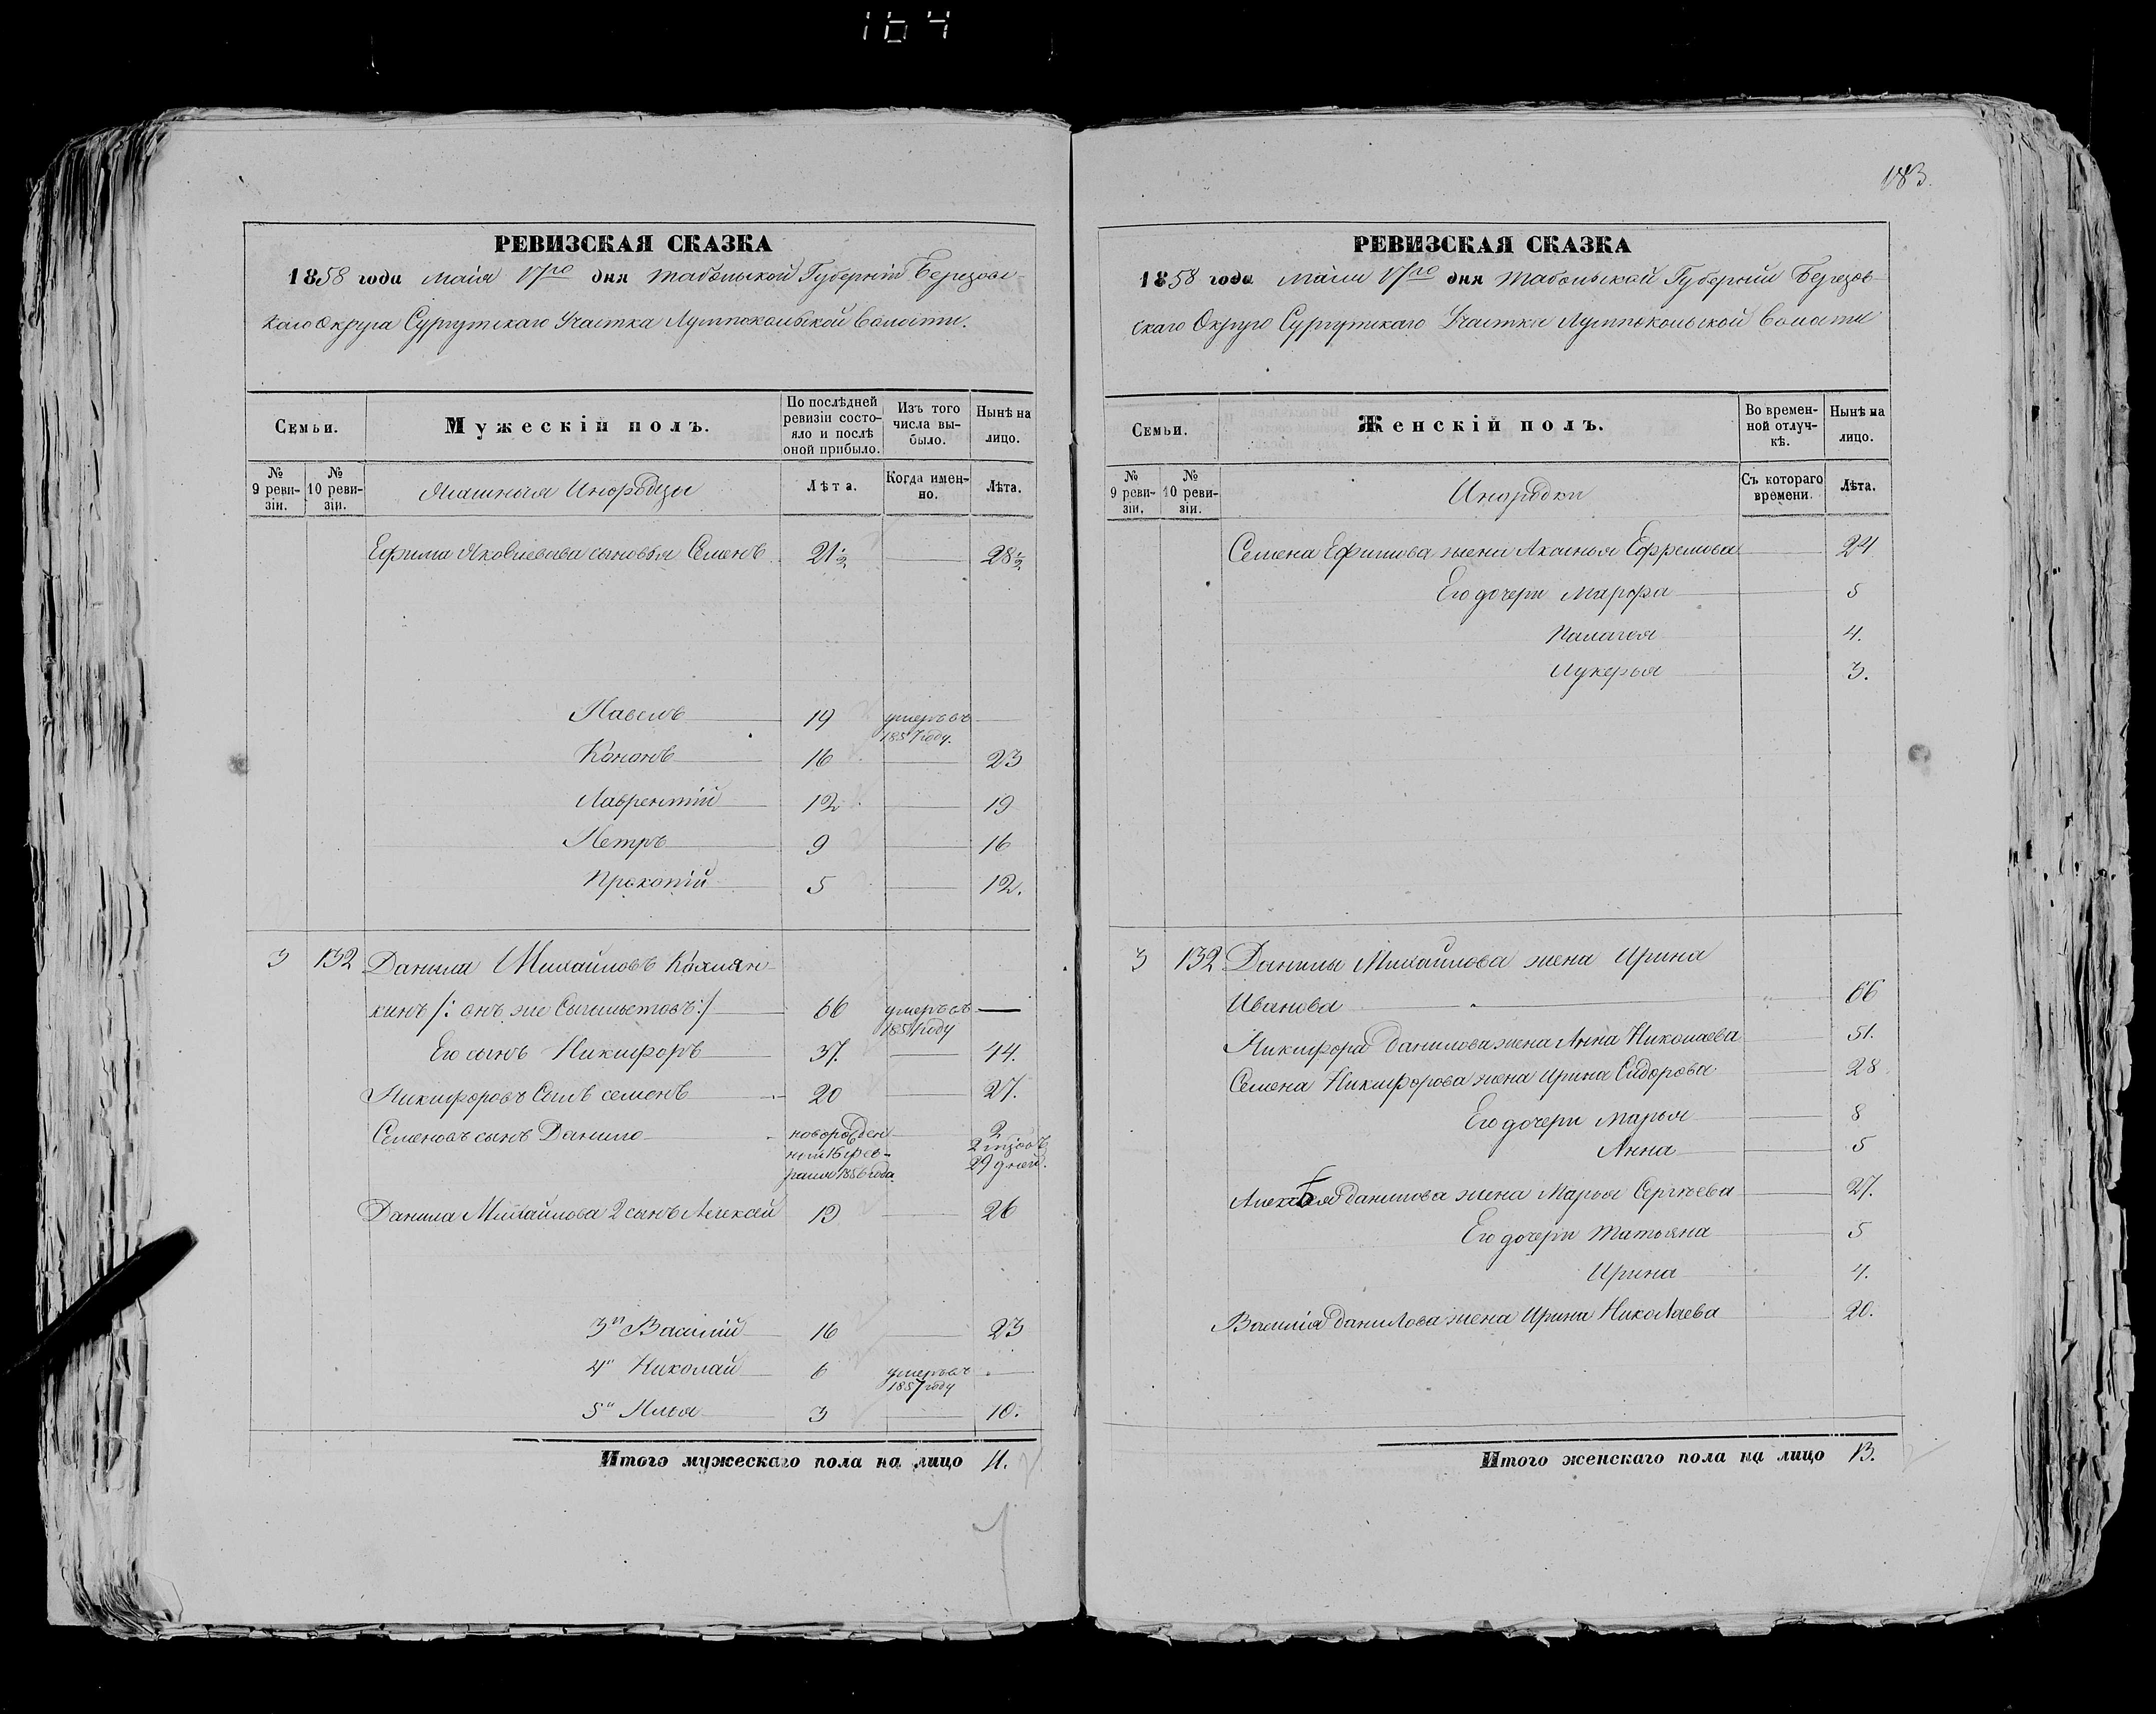 164
РЕВИЗСКАЯ СКАЗКА
1858 года Маія 17го дня Тобольской Губерніи Березовс-
каго Округа Сургутскаго Участка Лумпокольской Волости.
Семьи.
Мужескій полъ.
По послѣдней ревизіи состо-
яло и послѣ оной прибыло.
Изъ того числа вы-
было.
Нынѣ на лицо.
№ 9 реви-
зіи.
№ 10 реви-
зіи.
Ясашныя Инородцы
Лѣта.
Когда имен-
но.
Лѣта.
Ефима Яковлевава сыновья Семенъ 21½ 28½
Павелъ 19 умеръ въ
1857 году.
Кононъ 16 23
Лаврентій 12 19
Петръ 9 16
Прокопій 5 12.
3 132 Данила Михайловъ
кинъ /: онъ же :/ 66 умеръ въ
году
Его сынъ Никифоръ 37. 44.
Никифоровъ Сынъ семенъ 20 27.
Семеновъ сынъ Данило новорожден 2
ный 16 фев- 2 года
раля 1856 года 29 дней.
Данила Михайлова 2 сынъ Алексей 19 26
3й Василій 16 23
4й Николай 6 умеръ въ
1857 году
5й Илья 3 10.
Итого мужескаго пола на лицо 11.
183.
РЕВИЗСКАЯ СКАЗКА
1858 года Маія 17го дня Тобольской Губерніи Березов-
скаго Округа Сургутскаго Участка Лумпокольской Волости
Семьи.
Женскій полъ.
Во времен-
ной отлуч-
кѣ.
Нынѣ на
лицо.
№ 9 реви-
зіи.
№ 10 реви-
зіи.
Инородки
Съ котораго
времени.
Лѣта.
Семена Ефимова жена Аксинья Ефремова 24
Его дочери Марфа 5
Палагея 4.
Лукерья 3.
3 132 Данилы Михайлова жена Ирина
Иванова 66
Никифора данилова жена Анна Николаева 51.
Семена Никифорова жена Ирина Сидорова 28
Его дочери Марья 8
Анна 5
Алексѣя данилова жена Марья Сергѣева 27.
Его дочери Татьяна 5
Ирина 4.
Василія данилова жена Ирина Николаева 20.
Итого женскаго пола на лицо 13.